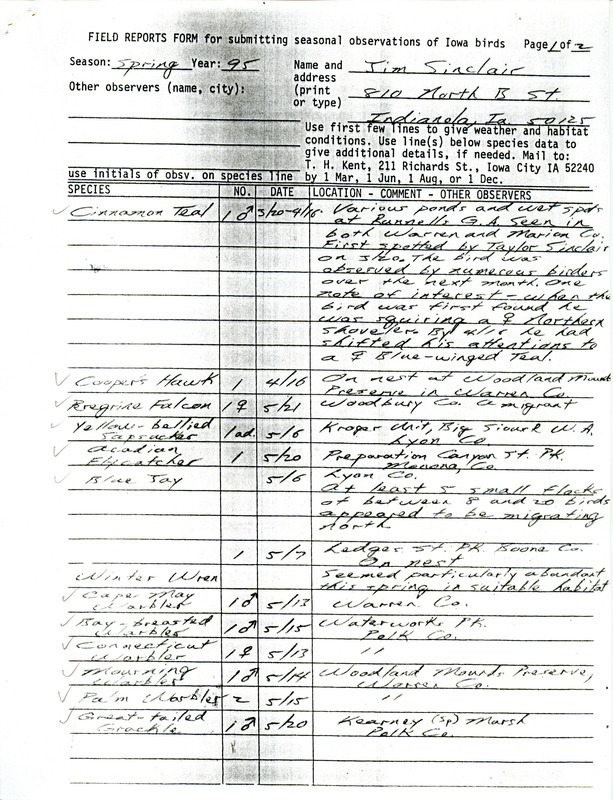 FIELD REPORTS FORM for submitting seasonal observations of Iowa birds Page 1 of 2
Season: Spring Year: 95 Name and Jim Sinclair
address
Other observers (name, city): (print 810 North B St.
or type)
Indianola, Ia 50125
Use first few lines to give weather and habitat
conditions. Use line(s) below species data to
give additional details, if needed. Mail to:
T. H. Kent, 211 Richards St., Iowa City IA 52240
use initials of obsv. on species line by 1 Mar, 1 Jun, 1 Aug, or 1 Dec.
SPECIES NO. DATE LOCATION - COMMENT - OTHER OBSERVERS
Cinnamon Teal 1♂ 3/20-4/16 Various ponds and wet spots
at Runnells G.A. Seen in
both Warren and Marion Co.
First spotted by Taylor Sinclair
on 3/20. The bird was
observed by numerous birders
over the next month. One
note of interest - when the
bird was first found he
was squiring a ♀ Northern
Shoveler. By 4/15 he had
shifted his attentions to
a ♀ Blue-winged Teal.
Cooper's Hawk 1 4/16 On nest at Woodland Mound
Preserve in Warren Co.
Peregrine Falcon 1♀ 5/21 Woodbury Co. a migrant
Yellow-bellied
Sapsucker 1ad. 5/6 Kroger Unit, Big Sioux W.A.
Lyon Co.
Acadian
Flycatcher 1 5/20 Preparation Canyon St. Pk.
Monona, Co.
Blue Jay 5/6 Lyon Co.
At least 5 small flocks
of between 8 and 20 birds
appeared to be migrating
north.
1 5/7 Ledges St. Pk. Boone Co.
On nest
Winter Wren Seemed particularly abundant
this spring in suitable habitat
Cape May
Warbler 1♂ 5/13 Warren Co.
Bay-breasted
Warbler 1♂ 5/15 Waterworks Pk.
Polk Co.
Connecticut
Warbler 1♀ 5/13 "
Mourning
Warbler 1♂ 5/14 Woodland Mounds Preserve,
Warren Co.
Palm Warbler 2 5/15 "
Great-tailed
Grackle 1♂ 5/20 Kearney (sp) Marsh
Polk Co.